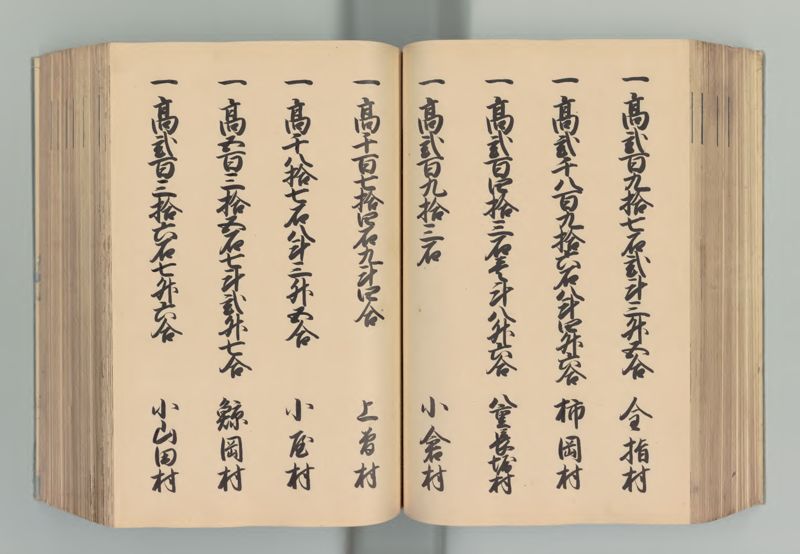 一高貮百九拾七石貮斗三升五合 金指村
一高貮千八百九拾六石八斗四升六合 柿岡村
一高貮百四拾三石壱斗八升六合 村
一高貮百九拾三石 小倉村
一高千百七拾四石九斗四合 上曽村
一高千八拾七石八斗三升五合 小屋村
一高五百三拾五石七斗貮升七合 鯨岡村
一高貮百三拾六石七升六合 小山田村